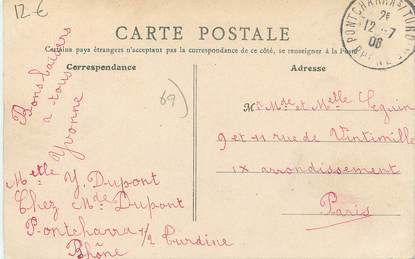 12-€
CARTE POSTALE
Certains pays étrangers n'acceptant pas la correspondance de ce côté, se renseigner à la Poste
Correspondance
Adresse
PONTCHARRA S TURDINE
2e
12 -7
08
RHÔNE
69)
Bons baisers
a tous
Yvonne
Melle Y. Dupont
Chez Mde Dupont
Pontcharra s/ Turdine
Rhône
Mr Mde et Melle Seguin
9 et 11 rue de Vintimille
IX arrondissement
Paris